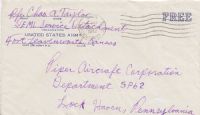 Pfc. Chas A. Taylor
Service Detachment
UNITED STATES ARMY
Fort Leavenworth, Kansas
FREE
Piper Aircraft Corporation
Department SP62
Lock Haven, Pennsylvania